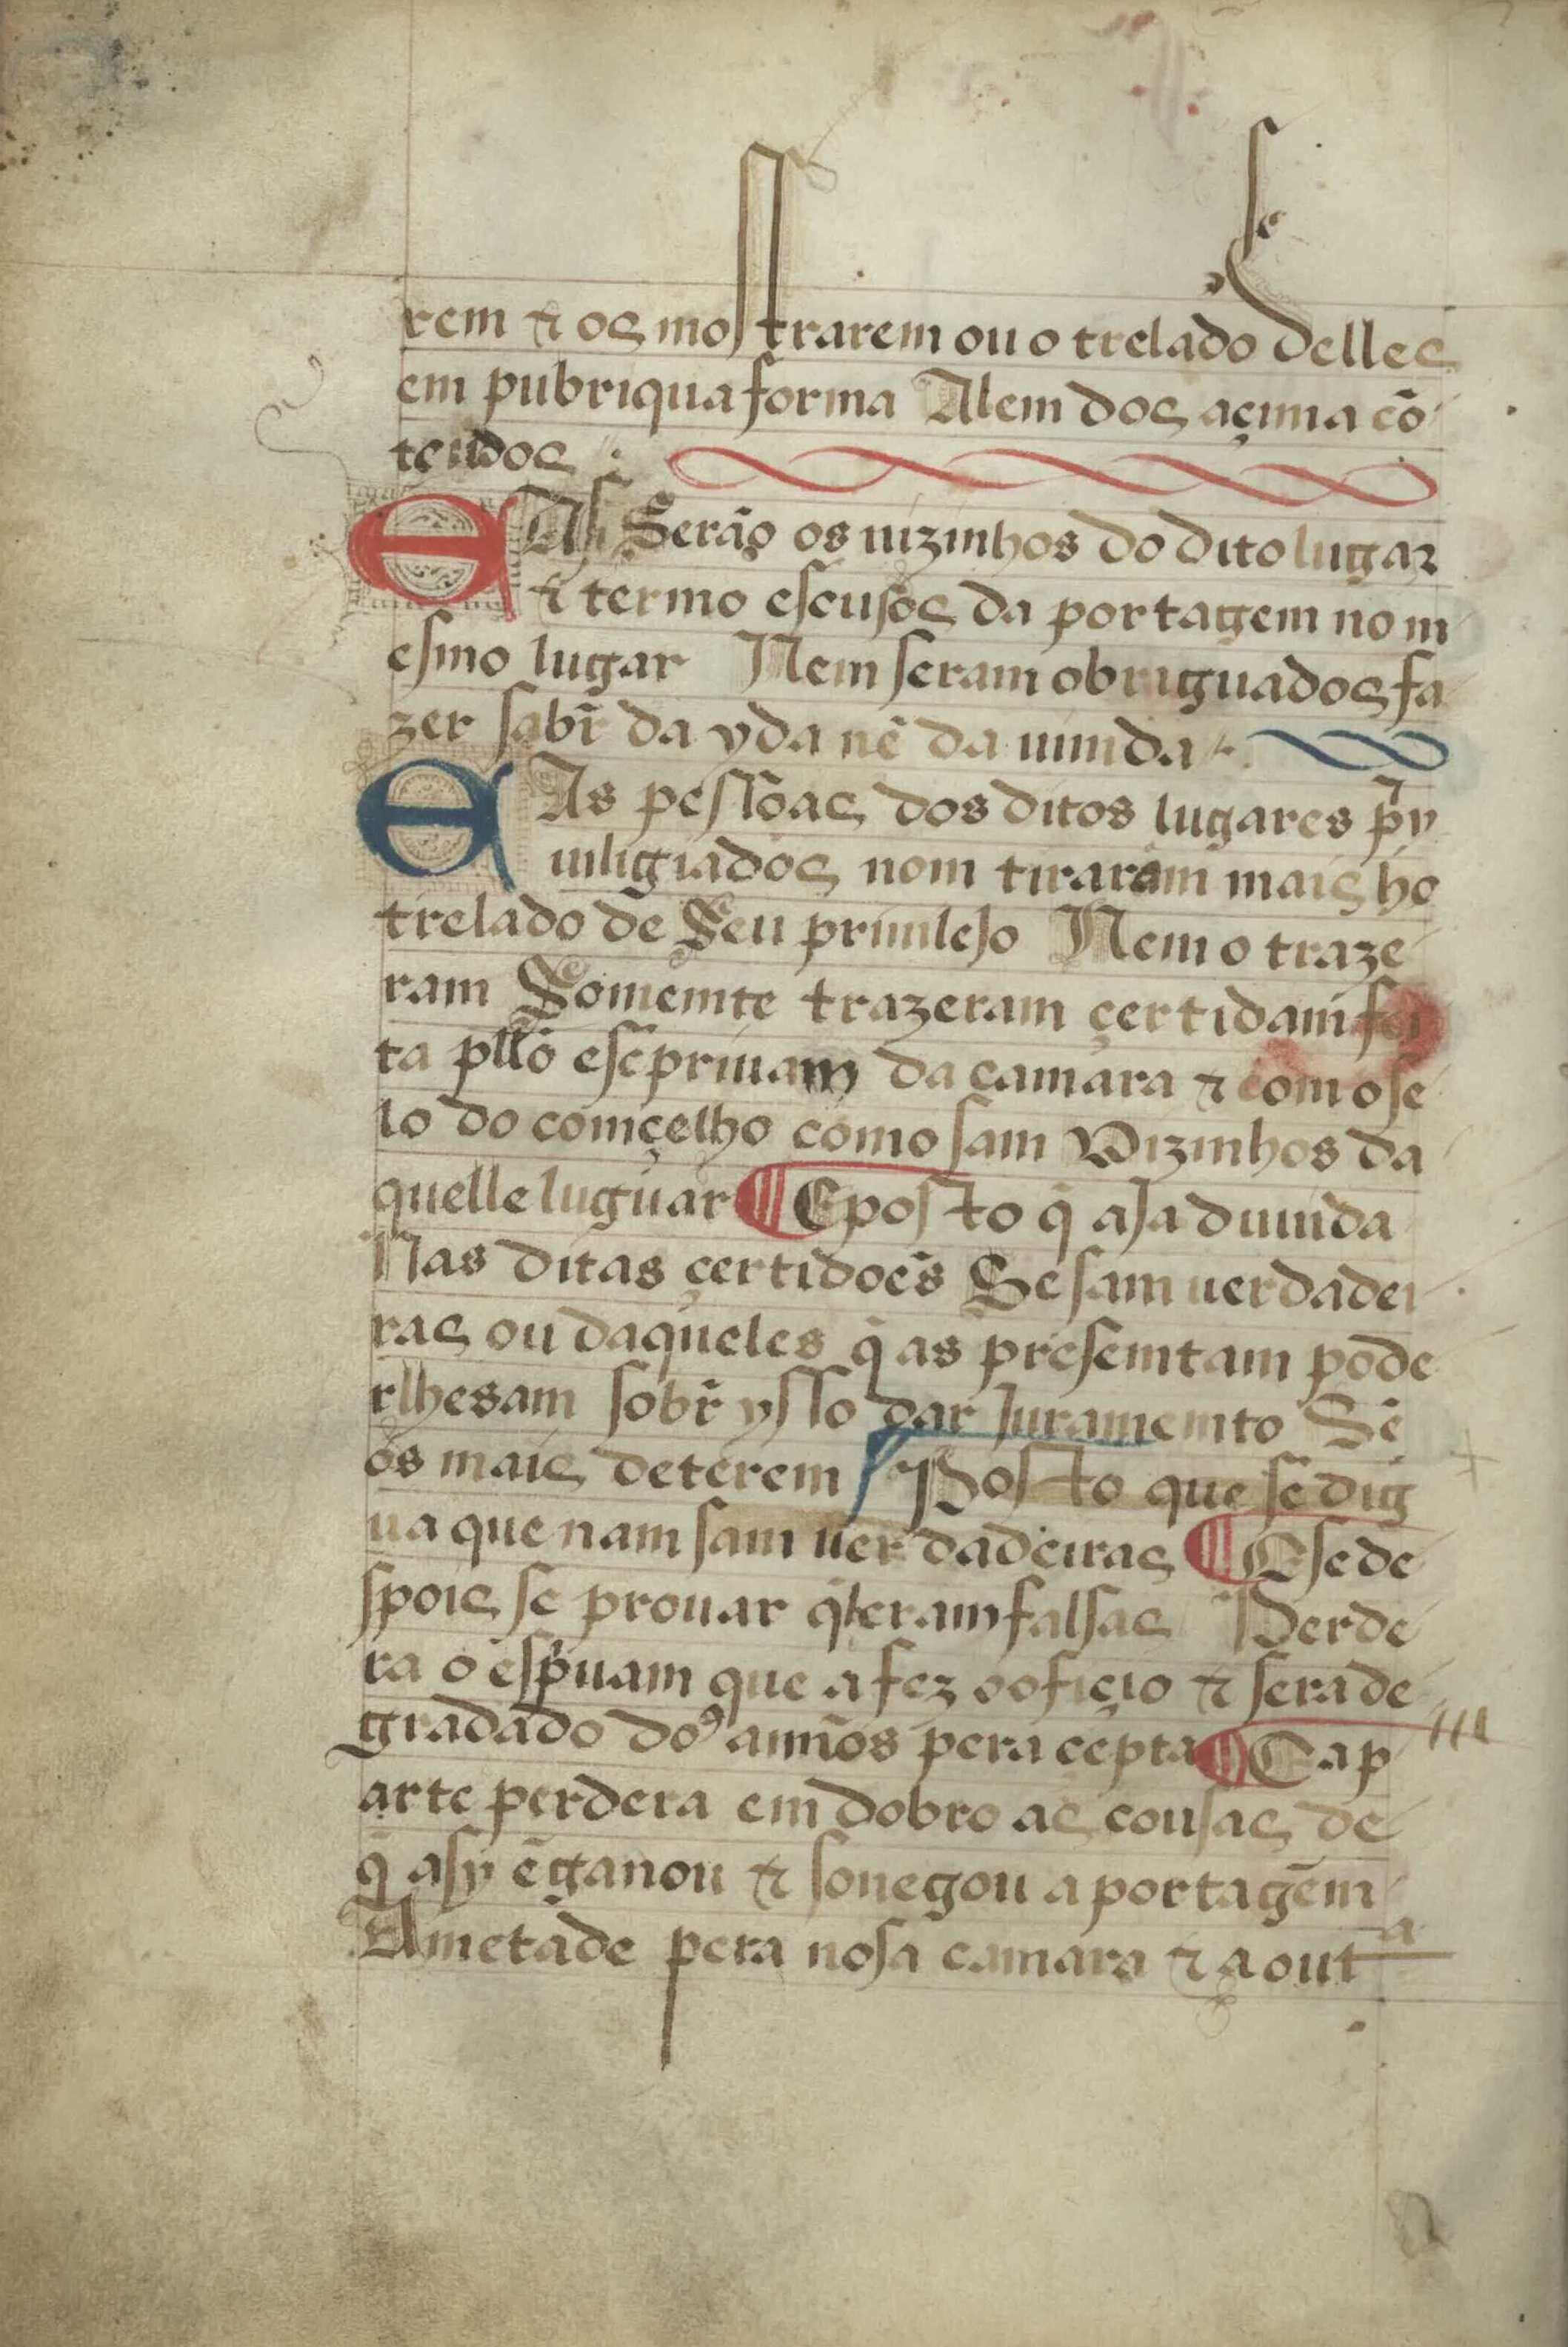 se
rem ⁊ os mostrarem ou o trelado delles
em pubriqua forma Alem dos açima cõ
teudos
E Asi Serão os uizinhos do dito lugar
⁊ termo escusos da portagem no m
esmo lugar Nem seram obriguados fa
zer sabr̃ da yda nẽ da uinda
E As pessoas dos ditos lugares pry
uiligiados nom tiraram mais ho
trelado de Seu priuilejo Nem o traze
ram Somemte trazeram çertidam fei
ta pllo escpriuam da camara ⁊ com o se
lo do comçelho como sam Vizinhos da
quelle luguar ¶ E posto q̃ aja duuida
Nas ditas çertidoẽs Se sam uerdadei
ras ou daqueles q̃ as presemtam pode
rlhesam sobr̃ ysso dar Juramemto Sẽ
os mais deterem Posto que se dig
ua que nam sam uerdadeiras ¶ E se de
spois se prouar q̃ eram falsas Perde
ra o espuam que a fez o ofiçio ⁊ sera de
gradado do⁹ annos pera çepta ¶ E a p
arte perdera em dobro as cousas de
q̃ asy ẽganou ⁊ sonegou a portagẽm
Ametade pera nosa camara ⁊ a outᵃ